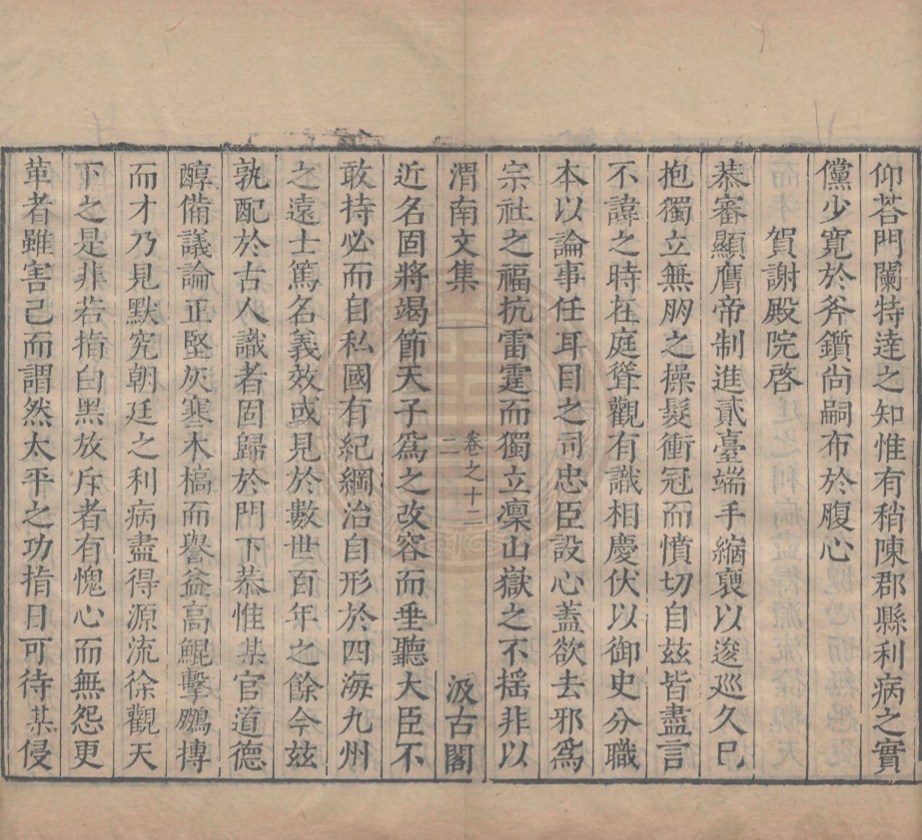 仰荅門闌特達之知惟有稍陳郡縣利病之實
儻少寬於斧鑕尚嗣布於腹心
賀謝殿院啓
恭審顯膺帝制進貳臺端手縮褏以逡巡久已
抱獨立無朋之操髮衝冠而憤切自兹皆盡言
不諱之時在庭聳觀有識相慶伏以御史分職
本以論事任耳目之司忠臣設心蓋欲去邪爲
宗社之福抗雷霆而獨立凛山嶽之不摇非以
渭南文集
卷之十二
二
汲古閣
近名固將竭節天子爲之改容而垂聽大臣不
敢持必而自私國有紀綱治自形於四海九州
之遠士篤名義效或見於數世百年之餘今兹
孰配於古人識者固歸於門下恭惟某官道德
醇備議論正堅灰寒木槁而譽益高鯤擊鵬摶
而才乃見默究朝廷之利病盡得源流徐觀天
下之是非若指白黑放斥者有愧心而無怨更
革者雖害己而謂然太平之功指日可待某侵